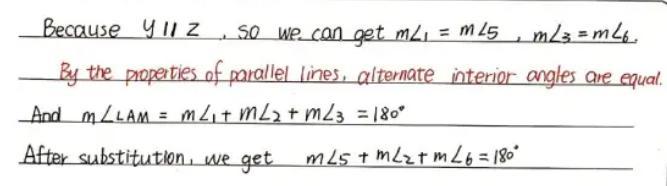 Because y || z , so we can get m∠1 = m∠5 , m∠3 = m∠6.
By the properties of parallel lines, alternate interior angles are equal.
And m∠LAM = m∠1 + m∠2 + m∠3 = 180°
After substitution, we get m∠5 + m∠2 + m∠6 = 180°